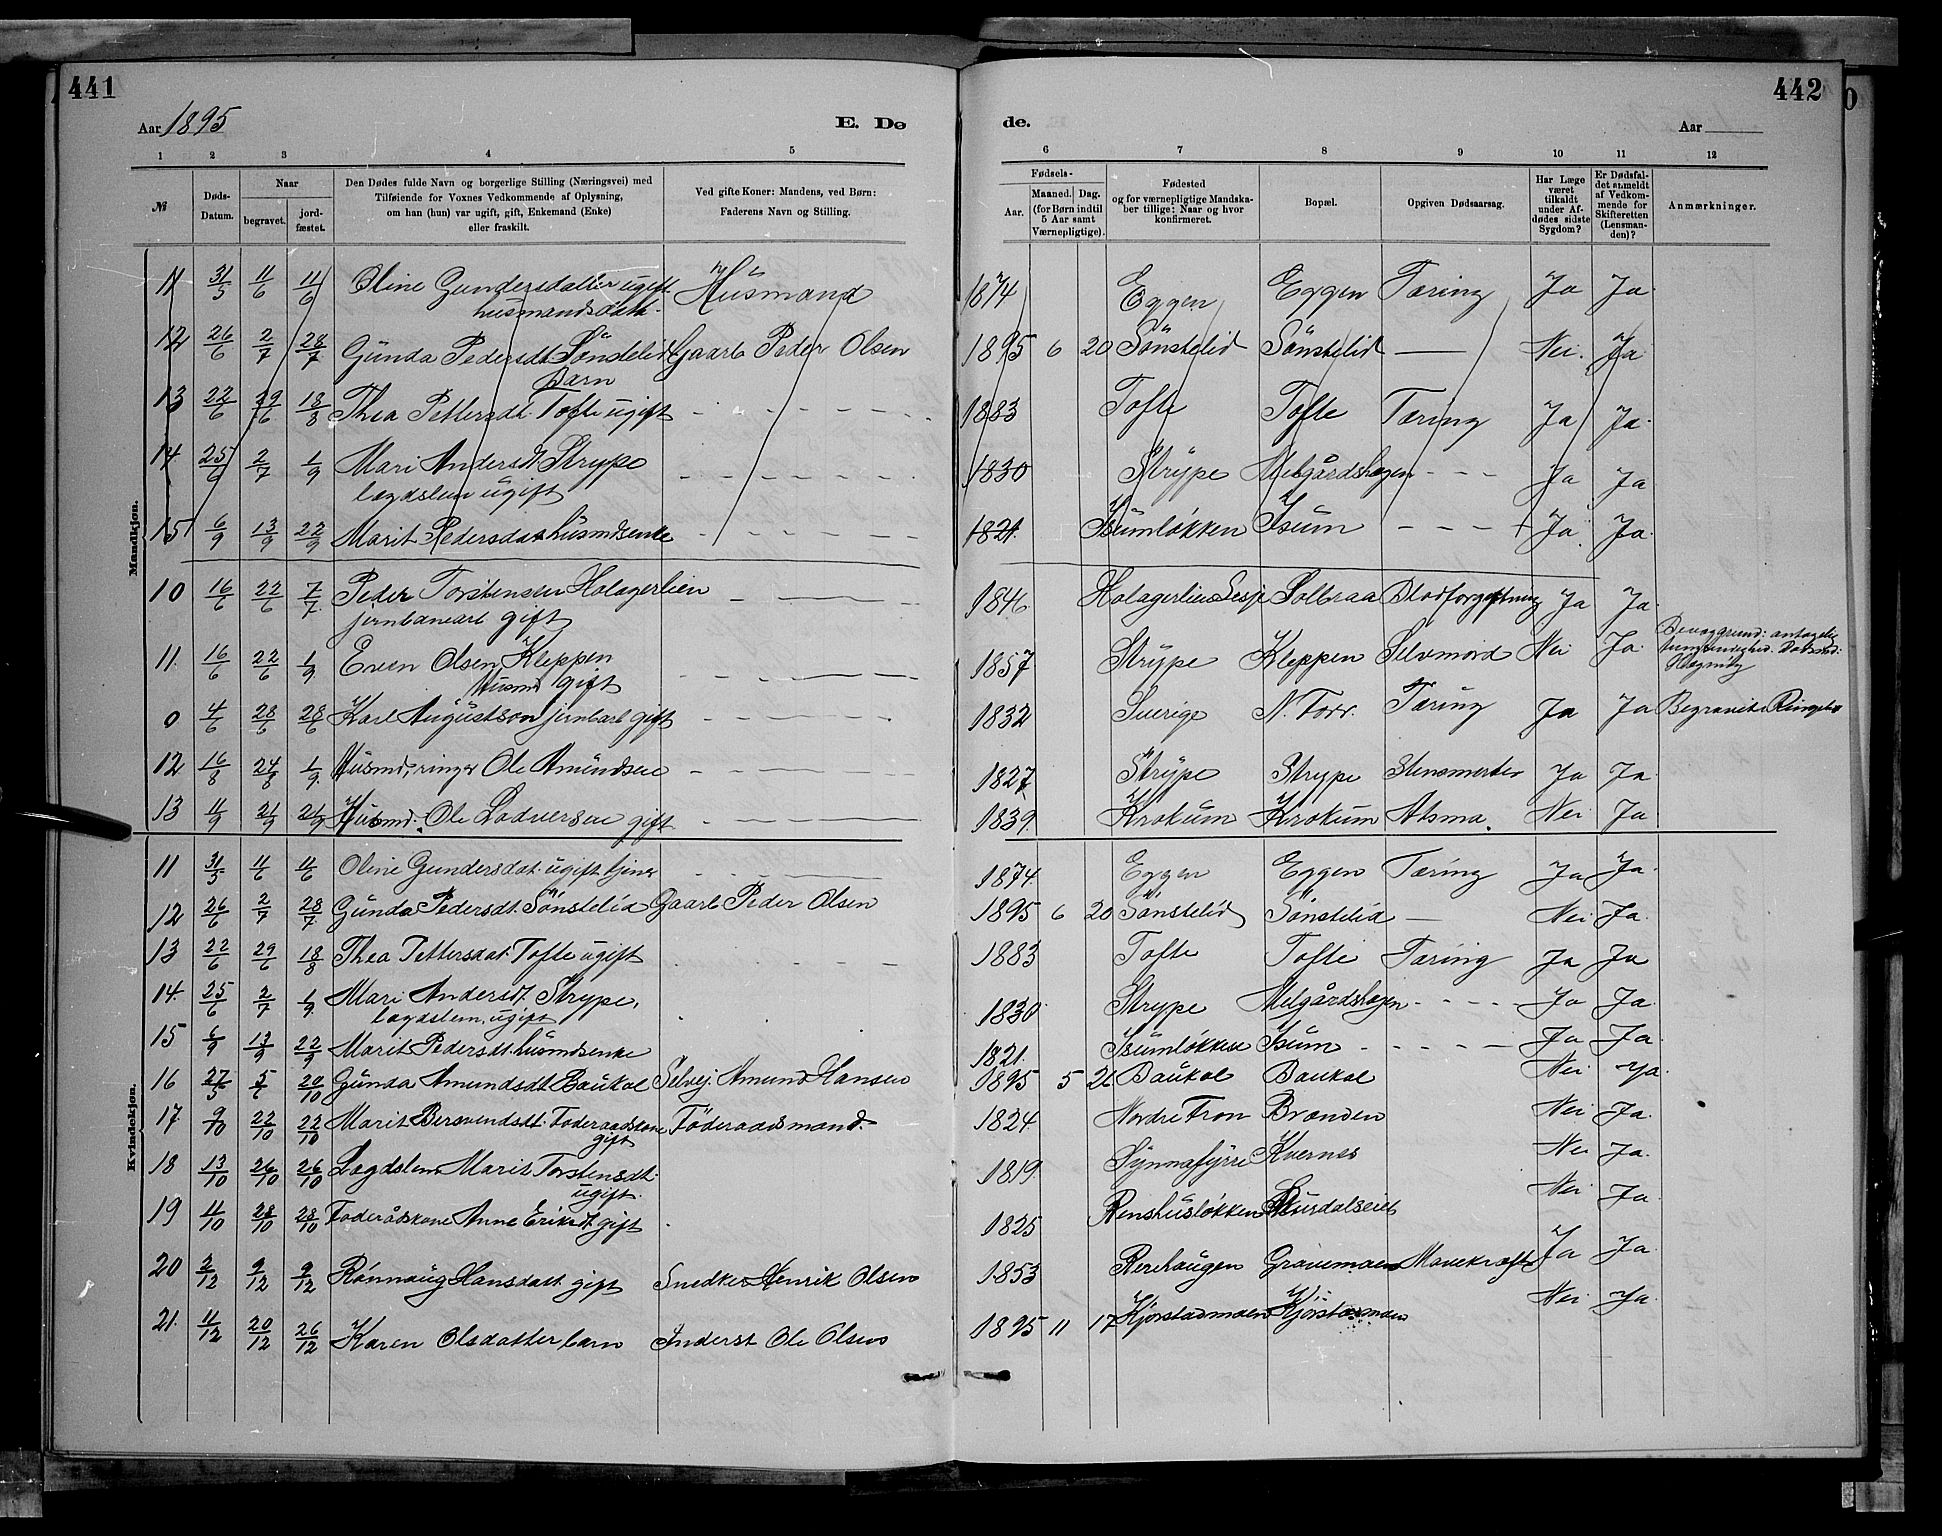 441
442
Aar 1895
E. Dø
de.
Aar
1 2 3 4 5 6 7 8 9 10 11 12
№
Døds-Datum.
Naar
begravet.
jord-fæstet.
Den Dødes fulde Navn og borgerlige Stilling (Næringsvei) med
Tilføiende for Voxnes Vedkommende af Oplysning,
om han (hun) var ugift, gift, Enkemand (Enke)
eller fraskilt.
Ved gifte Koner: Mandens, ved Børn:
Faderens Navn og Stilling.
Fødsels-
Aar.
Maaned. Dag.
(for Børn indtil
5 Aar samt
Værnepligtige).
Fødested
og for værnepligtige Mandska-
ber tillige: Naar og hvor
konfirmeret.
Bopæl.
Opgiven Dødsaarsag.
Har Læge
været
tilkaldt
under Af-
dødes sidste
Sygdom?
Er Dødsfal-
det anmeldt
af Vedkom-
mende for
Skifteretten
(Lensman-
den)?
Anmærkninger.
Mandkjøn.
11 31/5 11/6 11/6 Oline Gundersdatter ugift Husmand 1874 Eggen Eggen Tæring Ja Ja
husmandsdatt.
12 26/6 2/7 28/7 Gunda Pedersdt Sönstelid Gaarb Peder Olsen 1895 6 20 Sönstelid Sönstelid — Nei. Ja
barn
13 22/6 29/6 18/8 Thea Pettersdt Tofte ugift 1883 Tofte Tofte Tæring Ja Ja.
14 25/6 2/7 1/9 Mari Andersdt Strype 1830 Strype Melgårdshagen - - - Ja Ja
lægdslem ugift
15 6/9 13/9 22/9 Marit Pedersdat husmdsenke 1821. Isumløkken Isum - - - Ja Ja.
10 16/6 22/6 7/7 Peder Torstensen Holagerlien — 1846 Holagerlien Lesje Solbraa Blodforgiftning Ja Ja.
jernbanearb gift
11. 16/6 22/6 1/9 Even Olsen Kleppen 1857 Strype Kleppen Selvmord Nei Ja Bevæggrund: antagelig
Husmd gift
0 4/6 28/6 28/6 Karl Augustson jernbarb gift 1832 Sverige N. Forr. Tæring Ja Ja Begravet i Ringebu
12 16/8 24/8 1/9. Husmd, ringer Ole Amundsen 1827 Strype Strype Stensmerter Ja Ja
13 11/9 21/9 21/9 Husmd. Ole Lodversen gift 1839. Krokum Krokum Atsma. Nei Ja
Kvindekjøn.
11 31/5 11/6 11/6 Oline Gundersdat. ugift tjener 1874. Eggen Eggen Tæring Ja Ja.
12 26/6 2/7 28/7 Gunda Pedersdt. Sönstelid Gaarb Peder Olsen 1895 6 20 Sönstelid Sönstelid — Nei Ja.
13 22/6 29/6 18/8 Thea Pettersdat. Tofte ugift 1883 Tofte Tofte Tæring Ja Ja
14. 25/6 2/7 1/9 Mari Andersdt. Strype, 1830. Strype Melgårdshagen - - - Ja Ja.
lægdslem, ugift
15 6/9 13/9 22/9 Marit Pedersdt. husmdsenke 1821. Isumløkken Isum - - - Ja Ja.
16 27/5 5/6 20/10 Gunda Amundsdt Baukol Selvej. Amund Hansen 1895 5 26 Baukol Baukol Nei Ja.
17 9/10 22/10 22/10 Marit Bersvendsdt. Foderaadskone Föderaadsmand. 1824. Nordre Fron Brænden Nei Ja.
gift
18 13/10 26/10 26/10 Lægdslem Marit Torstensdt. 1819. Synnafyrre Kvernes Nei Ja.
ugift.
19 11/10 28/10 28/10 Foderådskone Anne Eriksdt gift 1825 Renshusløkken Nei Ja.
20 2/12 9/12 9/12 Rönnaug Hansdatt. gift Snedker Henrik Olsen 1853 Rerehaugen Gravemoen Mavekræft Ja Ja.
21. 11/12 20/12 26/12 Karen Olsdatter barn Inderst Ole Olsen 1895 11 17 Kjørstadmoen Kjørstadmoen Nei Ja.